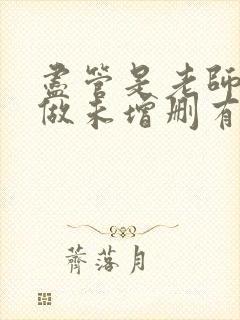 盡管是老師
做未增刪有
薺落月